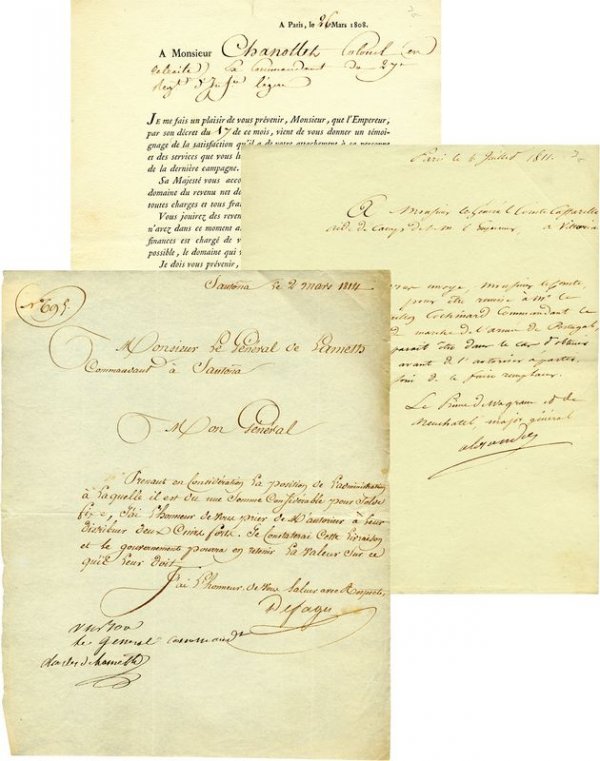 A Paris, le 26 Mars 1808.
A Monsieur Chanollet Colonel en
retraite Commandant du 27e
Regt d'Inf légère
Je me fais un plaisir de vous prévenir, Monsieur, que l'Empereur,
par son décret du 17 de ce mois, vient de vous donner un témoi-
gnage de la satisfaction qu'il a de votre attachement à sa personne
et des services que vous l
de la dernière campagne.
Sa Majesté vous acco
domaine du revenu net de
toutes charges et tous frai
Vous jouirez des reven
n'avez dans ce moment a
finances est chargé de v
possible, le domaine qui v
Je dois vous prévenir,
Paris le 6 Juillet 1811.
A Monsieur le Général Comte Caffarelli
aide de camp de S. M. l'Empereur, à Vittoria
envoye, Monsieur le Comte,
pour être remise à Mr le
Cochinard Commandant le
de marche de l'armée de Portugal,
paraît être dans le cas d'obtenir
avant de l'autoriser à partir,
de le faire remplacer.
Le Prince de Wagram et de
Neuchatel, major général
alexandre
N° 695
Santona le 2 mars 1814
Monsieur Le Général de Lameth
Commandant à Santona
Mon Général
Prenant en Considération La position de L'administration
à Laquelle il est dû une somme Considérable pour Solde
fixe, J'ai L'honneur de Vous prier de M'autoriser à Leur
distribuer deux Cents forts. Je Constaterai Cette Livraison
et le gouvernement pourra en retenir La Valeur Sur ce
qu'il Leur doit.
J'ai L'honneur de Vous Saluer avec Respect.
Le General commandt
Charles de Lameth